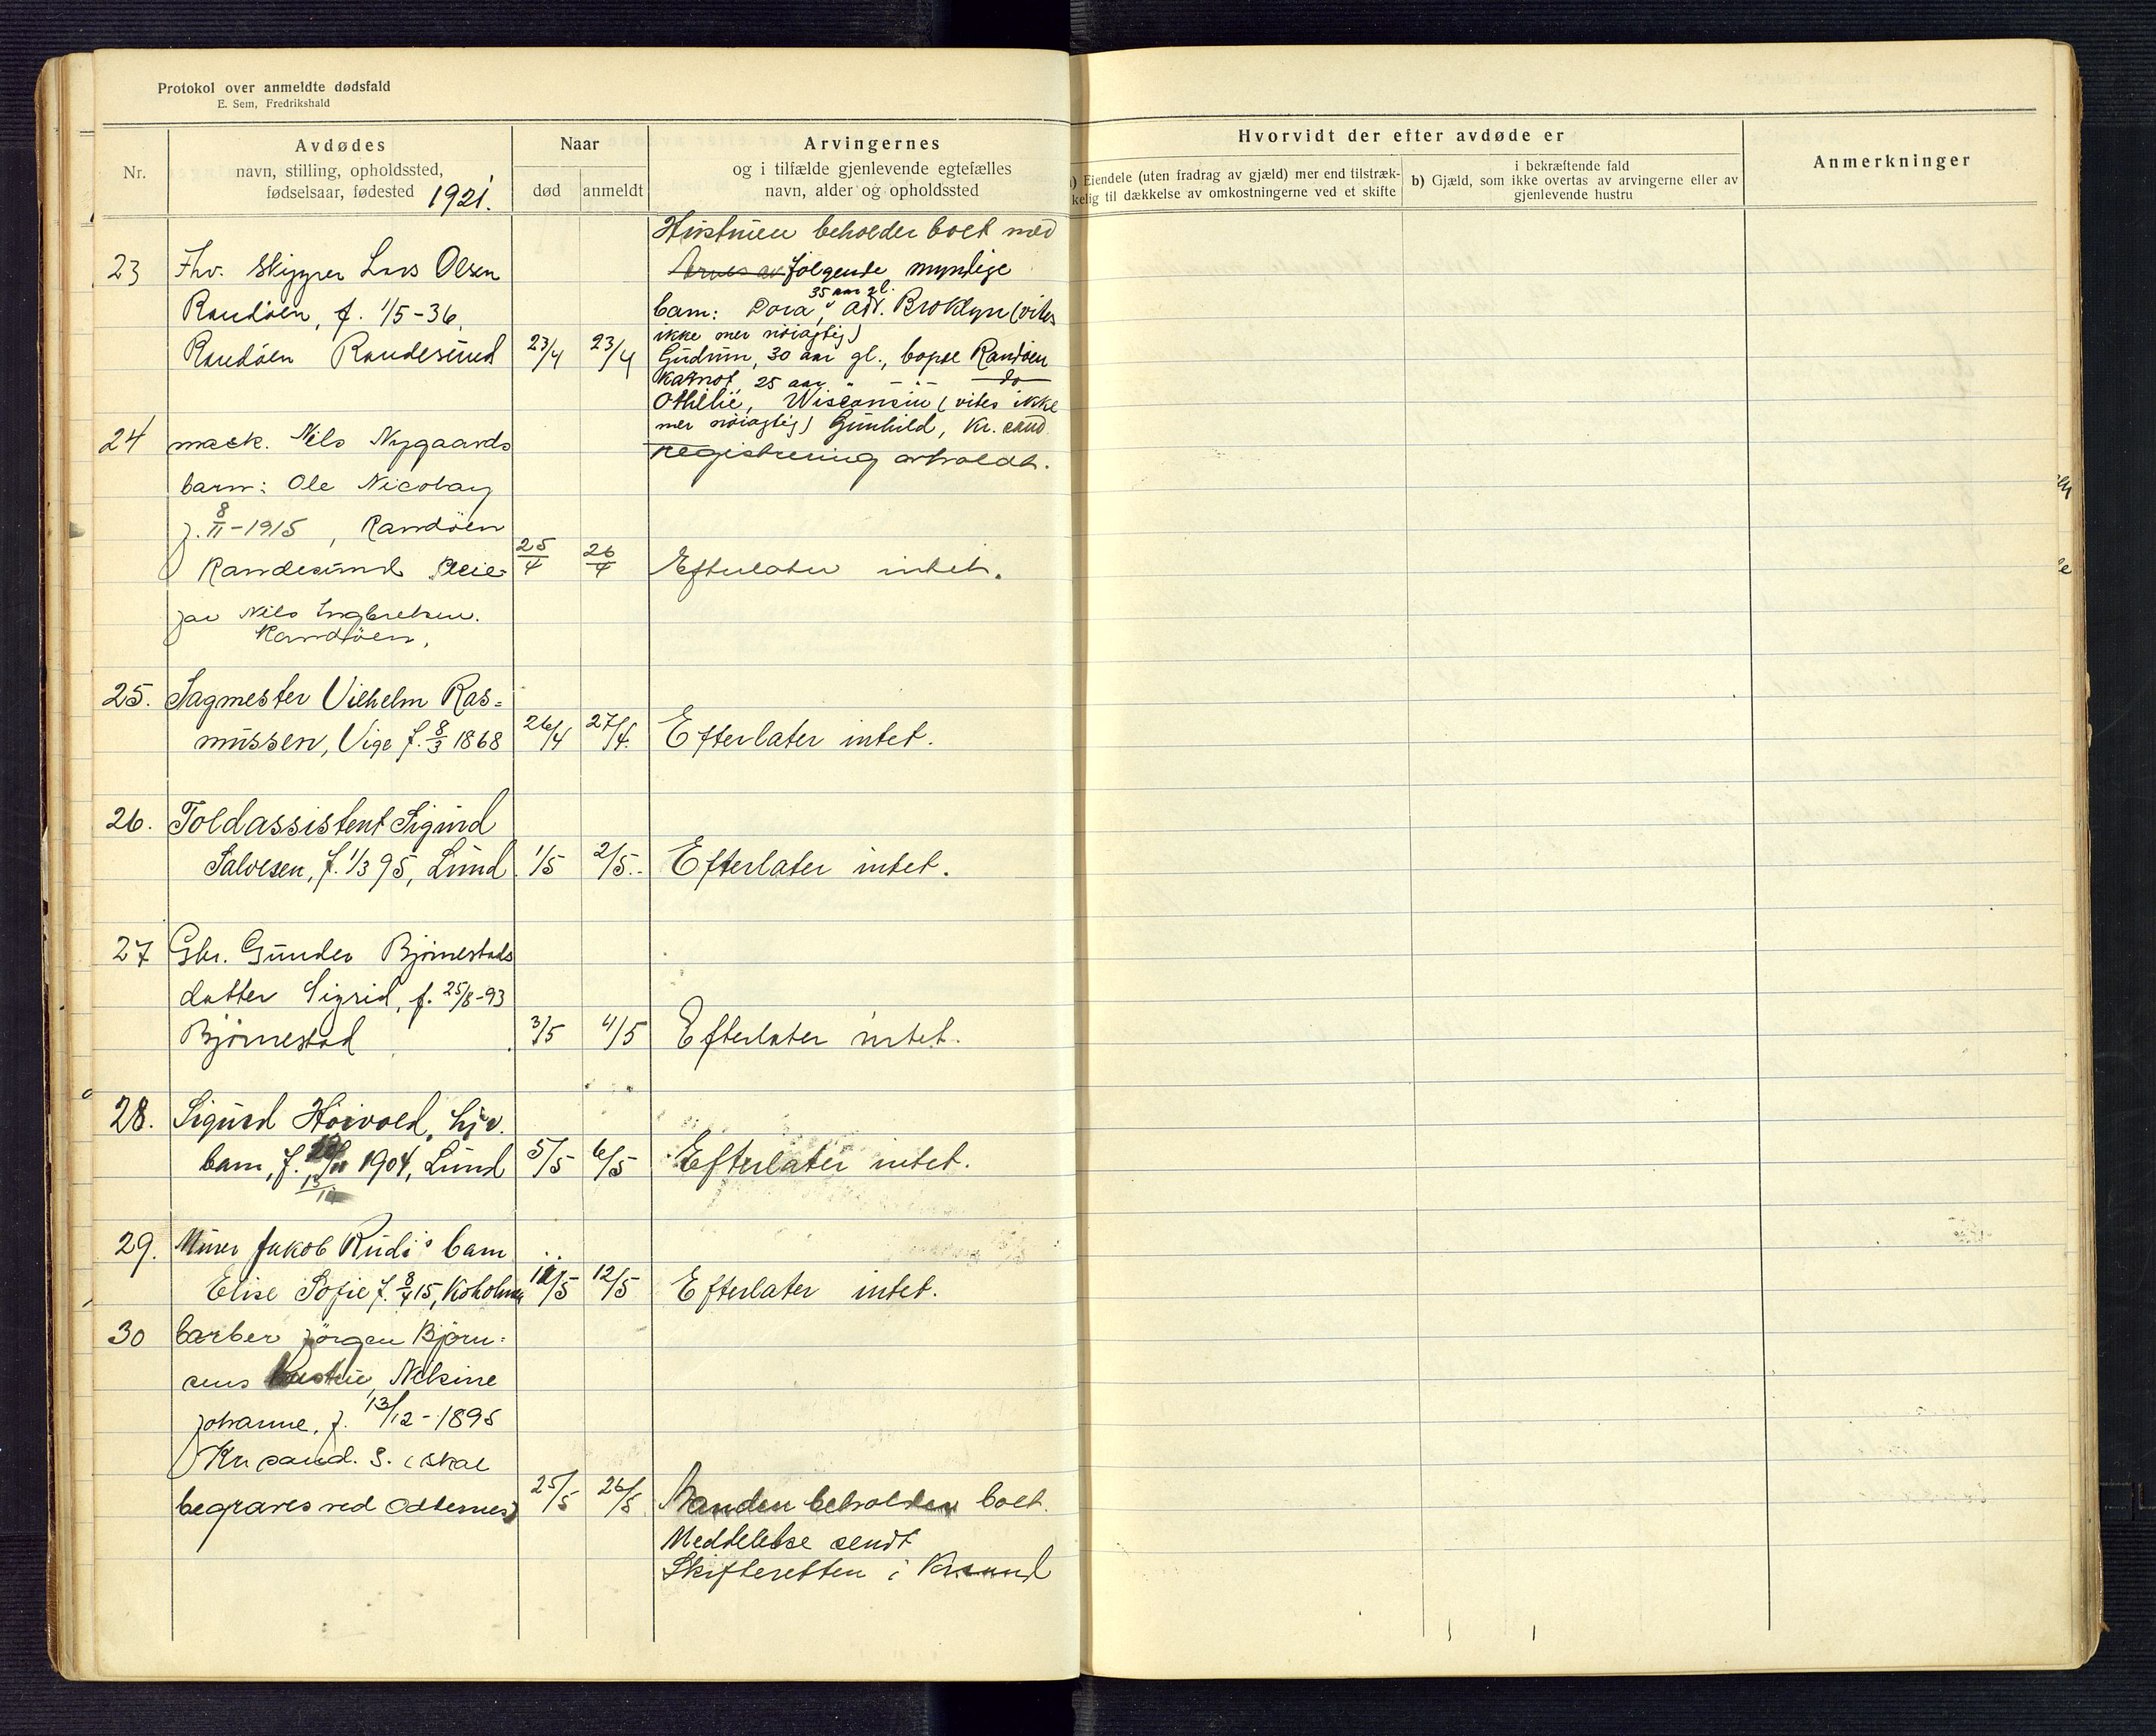 Protokol over anmeldte dødsfald
E. Sem, Fredrikshald
Nr.
Avdødes
navn, stilling, opholdssted,
fødselsaar, fødested 1921.
Naar
død
anmeldt
Arvingernes
og i tilfælde gjenlevende egtefælles
navn, alder og opholdssted
Hvorvidt der efter avdøde er
a) Eiendele (uten fradrag av gjæld) mer end tilstræk-
kelig til dækkelse av omkostningerne ved et skifte
i bekræftende fald
b) Gjæld, som ikke overtas av arvingerne eller av
gjenlevende hustru
Anmerkninger
Hustruen beholder boet med
følgende myndige
35 aar gl.
barn: Dora, adr. Broklyn (vites
ikke mer nöiagtig)
Gudrun, 30 aar gl., bopæl Randöen
25 aar " -"- do
Othilie, Wisconsin (vites ikke
mer nöiagtig) Gunhild, Kr. sand
registrering avholdt.
23 Fhv. Skipper Lars Olsen
Randöen, f. 1/5-36,
Randöen Randesund 23/4 23/4
24 mask. Nils Nygaards
barn: Ole Nicolay
f. 8/11-1915, Randöen
Randesund Pleie- 25/4 26/4 Efterlater intet.
far Nils Ingbretsen.
Randöen.
25. Sagmester Vilhelm Ras=
mussen, Vige f. 8/3 1868 26/4 27/4. Efterlater intet.
26. Toldassistent Sigurd
Salvesen, f. 1/3 95, Lund. 1/5 2/5. Efterlater intet.
27 Gbr. Gunder Bjørnestads
datter Sigrid, f. 25/8-93
Bjørnestad 3/5 4/5 Efterlater intet.
28. Sigurd Höivold, hjv.
barn, f. 1904, Lund 5/5 6/5 Efterlater intet.
13/11
29. Murer Jakob Rudi's barn
Elise Sofie f. 8/4 15, Koholmen 11/5 12/5 Efterlater intet.
30 barber Jörgen Björn=
sens hustru, Nelsine
Johanne, f. 13/12-1895
Kr.sand. S. (skal
begraves ved Oddernes) 25/5 26/5 Manden beholder boet.
Meddelelse sendt
Skifteretten i Kr.sand